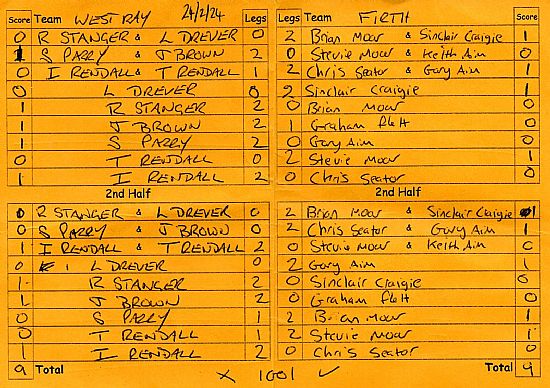 Score Team WESTRAY 24/2/24 Legs Legs Team FIRTH Score
0 R STANGER & L DREVER 0 2 Brian Moar & Sinclair Craigie 1
1 S PARRY & J BROWN 2 0 Stevie Moar & Keith Aim 0
0 I RENDALL & T RENDALL 1 2 Chris Seator & Gary Aim 1
0 L DREVER 0 2 Sinclair Craigie 1
1 R STANGER 2 0 Brian Moar 0
1 J BROWN 2 1 Graham flett 0
1 S PARRY 2 0 Gary Aim 0
0 T RENDALL 0 2 Stevie Moar 1
1 I RENDALL 2 0 Chris Seator 0
2nd Half 2nd Half
0 R STANGER & L DREVER 0 2 Brian Moar & Sinclair Craigie 1
0 S PARRY & J BROWN 0 2 Chris Seator & Gary Aim 1
1 I RENDALL & T RENDALL 2 0 Stevie Moar & Keith Aim 0
0 L DREVER 0 2 Gary Aim 1
1 R STANGER 2 0 Sinclair Craigie 0
1 J BROWN 2 0 Graham flett 0
0 S PARRY 1 2 Brian Moar 1
0 T RENDALL 1 2 Stevie Moar 1
1 I RENDALL 2 0 Chris Seator 0
9 Total X 1001 ✓ Total 9